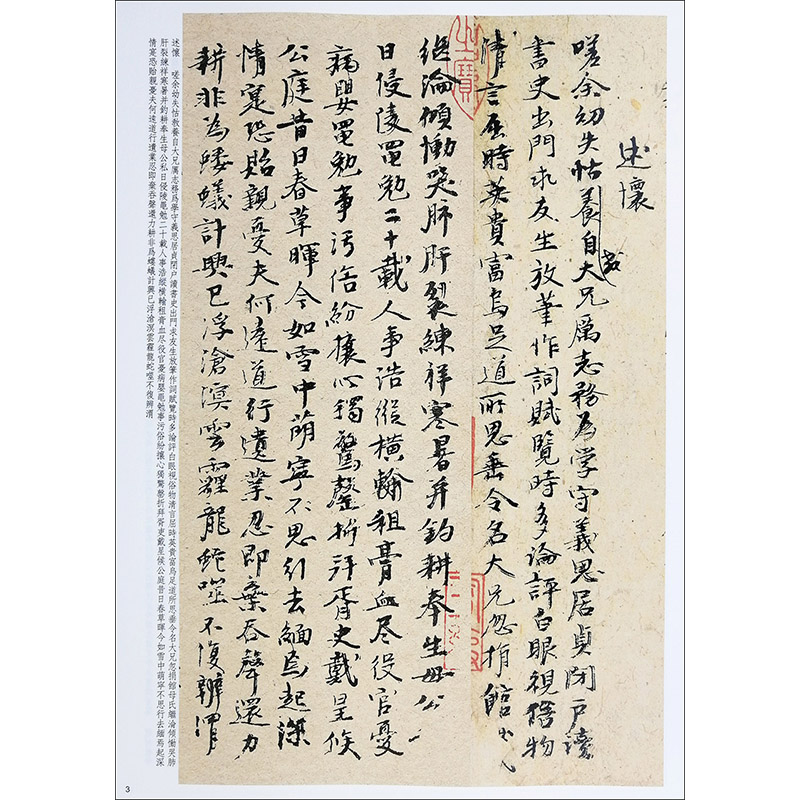 述懷
嗟余幼失怙教養自大兄厲志務為學守義思居貞閉戶讀
書史出門求友生放筆作詞賦覽時多論評白眼視俗物
清言屈時英貴富烏足道所思垂令名大兄忽捐館
繼淪傾慟哭肺肝裂練祥寒暑并釣耕奉生母公
日侵陵黽勉二十載人事浩縱橫輸租膏血盡役官憂
病嬰黽勉事污俗紛攘心獨驚罄折拜胥吏戴星候
公庭昔日春草暉今如雪中萌寧不思引去緬焉起深
情寔恐貽親憂夫何遠道行遺業忍即棄吞聲還力
耕非為螻蟻計興已浮滄溟雲霾龍蛇噬不復辨渭
之寶
述懷　嗟余幼失怙教養自大兄厲志務爲學守義思居貞閉户讀書史出門求友生放筆作詞賦覽時多論評白眼視俗物清言屈時英貴富烏足道所思垂令名大兄忽捐館母氏繼淪傾慟哭肺
肝裂練祥寒暑并釣耕奉生母公私日侵陵黽勉二十載人事浩縱橫輸租膏血尽役官憂病嬰黽勉事污俗紛攘心獨驚罄折拜胥吏戴星候公庭昔日春草暉今如雪中萌寧不思行去緬焉起深
情寔恐貽親憂夫何遠道行遺業忍即棄吞聲還力耕非爲螻蟻計興已浮滄溟雲霾龍蛇噬不復辨渭
3